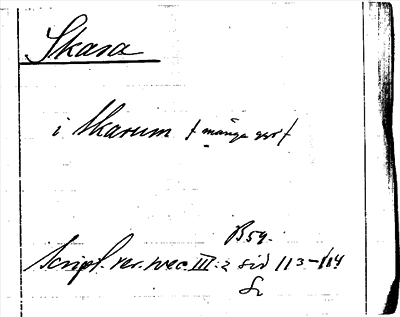 Skara
i Skarum / många ggr /
B59.
Script. rer. svec. III:2 sid 113-114